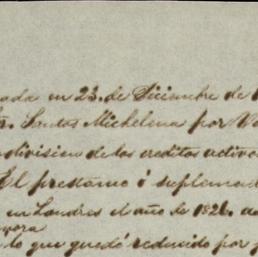 ada en 23. de Diciembre de 1
r. Santos Michelena por V
division de los creditos activo
El prestamo ó suplemen
en Londres el año de 1826. a
ora
lo que quedó reducido por